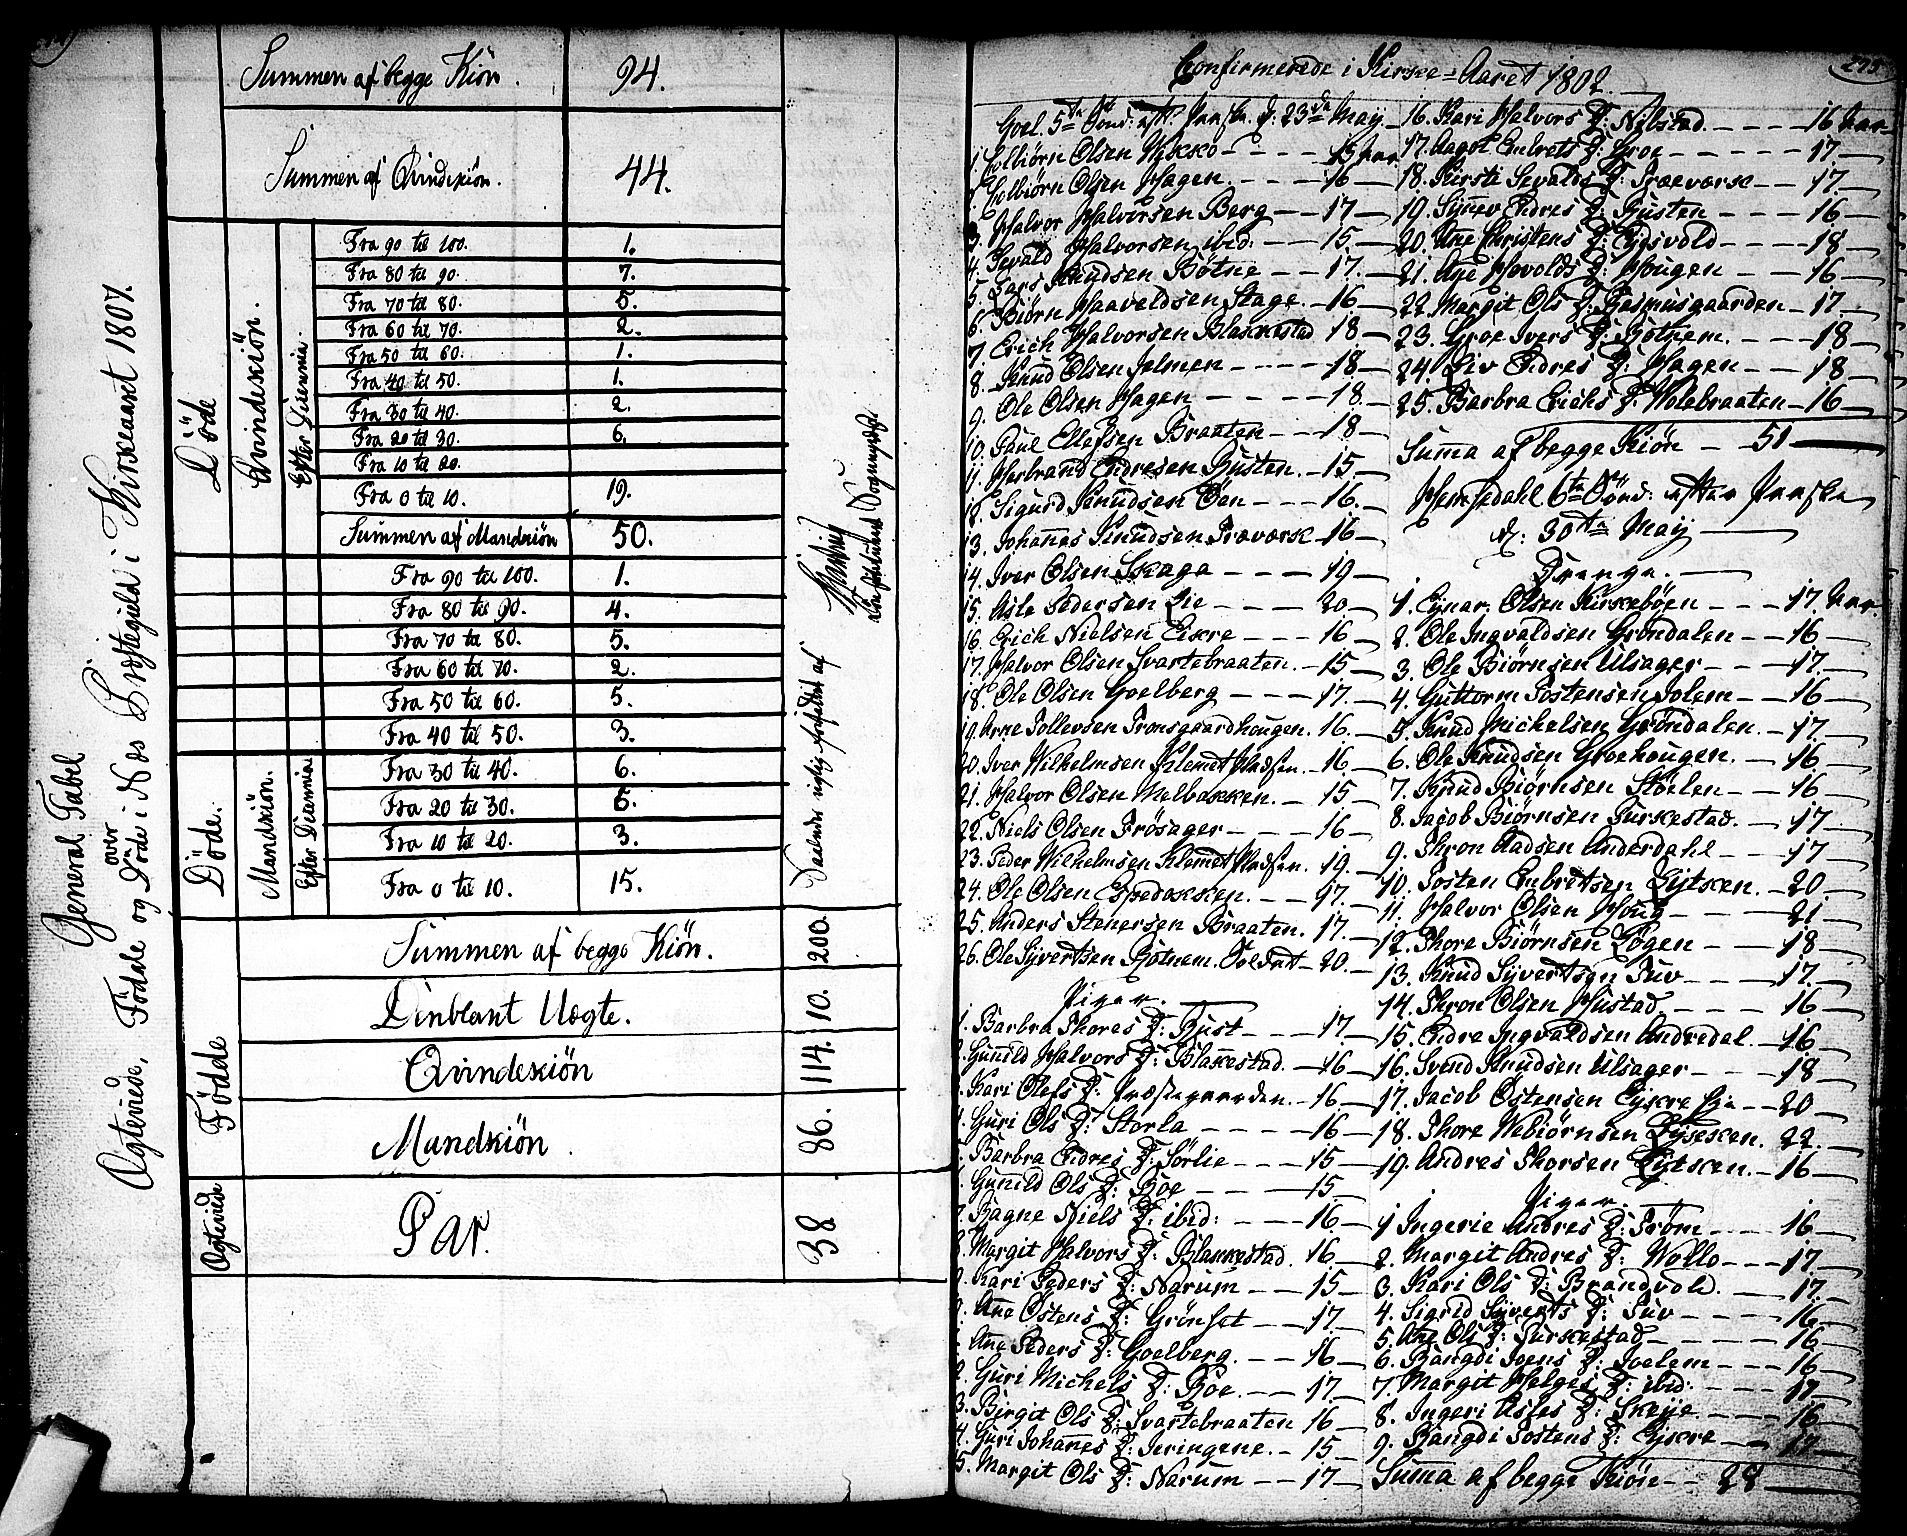 General Tabel
over
Ægteviede, Födde og Döde i Næs Præstegield i Kirkeaaret 1807.
Summen af begge Kiön. 94.
Summen af Qvindekiön. 44.
Döde
Qvindekiön.
Efter Decennia
Fra 90 til 100. 1.
Fra 80 til 90. 7.
Fra 70 til 80. 5.
Fra 60 til 70. 2.
Fra 50 til 60. 1.
Fra 40 til 50. 1.
Fra 30 til 40. 2.
Fra 20 til 30. 6.
Fra 10 til 20.
Fra 0 til 10. 19.
Summen af Mandkiön 50.
Fra 90 til 100. 1.
Fra 80 til 90. 4.
Fra 70 til 80. 5.
Fra 60 til 70. 2.
Fra 50 til 60. 5.
Fra 40 til 50. 3.
Döde.
Mandkiön.
Efter Decennia
Fra 30 til 40. 6.
Fra 20 til 30. 5.
Fra 10 til 20. 3.
Fra 0 til 10. 15.
Födde
Summen af begge Kiön. 200.
Deriblant Uægte. 10.
Qvindekiön 114.
Mandkiön 86.
Ægteviede
Par. 38
Saaledes rigtig forfattet af
Confirmerede i Kirke-Aaret 1802.
Goel. 5te Sönd: eft: Paaske. d: 23de Maij
1. Colbiörn Olsen 15 Aar
2. Colbiörn Olsen Hagen. 16
3. Halvor Halvorsen Berg 17
4. Sevald Halvorsen ibid: 15.
5. Lars Knudsen Bötne 17.
6. Biörn Haavoldsen Stage. 16
7. Erich Halvorsen Blakkestad 18
8. Knud Olsen Jelmen 18
9. Ole Olsen Hagen 18.
10. Paul Ellefsen Braaten 18
11. Herbrand Endresen Rusten. 15
12. Sigurd Knudsen Öen 16.
13. Johannes Knudsen Træværk 16
14. Iver Olsen Skaga 19
15. Asle Pedersen Lie 20
16. Erich Nielsen Eikre 16
17. Halvor Olsen Svartebraaten. 15
18. Ole Olsen Goelberg 17.
19. Arne Tollevsen Tronsgaardhougen. 16.
20. Iver Wilhelmsen Klemet Pladsen. 16
21. Halvor Olsen Melbakken. 15
22. Niels Olsen Frösager 16
23. Peder Wilhelmsen Klemet Pladsen. 19.
24. Ole Olsen Espedokken. 17.
25. Anders Stenersen Braaten. 17.
26. Ole Sÿvertsen Rotnem. 20.
Piger.
1. Barbra Thores D: Rust 17.
2. Gunild Halvors D: Blakkestad. 16
3. Kari Olefs D: Præstegaarden. 16
4. Guri Ols D: Storla 16
5. Barbra Endres D: Sörlie 15
6. Gunild Ols D: Roe 15
7. Ragne Niels D: ibid: 16
8. Margit Halvors D: Blakkestad. 16
9. Kari Peders D: Narum 15
Ane Östens D: Grönset 17
Ane Peders D: Goelberg. 16
2. Guri Michels D: Roe. 17
3. Birgit Ols D: Svartebraaten 16
4. Guri Johannes D: Jeringene. 15
5. Margit Ols D: Narum 17
275
16. Kari Halvors D: Nibstad. 16 Aar
17. Aagot Embrets D: Groe 17.
18. Kirsti Sevalds D: Træværk 17.
19. Sÿnev Endres D: Rusten 16
20. Ane Christens D: Eidsvold 18
21. Ane Hovolds D: Hougen 16
22. Margit Ols D: Rasmusgaarden 17.
23. Groe Ivers D: Rotnem. 18
24. Liv Endres D: Hagen 18
25. Barbra Erichs D: Holebraaten 16
Suma af begge Kiön 51
Hemsedahl 6te Sönd: efter Paaske
d: 30te Maij
Drenge.
1. Ejnar Olsen Kirkeböen 17. Aar
2. Ole Ingvaldsen Gröndalen 16
3. Ole Biörnsen Ulsager 17.
4. Guttorm Tostensen Jolem 16
5. Knud Michelsen Gröndalen. 17.
6. Ole Knudsen Groehougen. 16
7. Knud Biörnsen Stölen 16
8. Jacob Biörnsen Turkestad. 17
9. Thron Aadsen Anderdahl 17
10. Tosten Embretsen Lÿtken. 20
11. Halvor Olsen Houg 21
12. Thore Biörnsen Lögen 18
13. Knud Sÿvertsen Tuv 17.
14. Thron Olsen Hustad 16
15. Endre Ingvaldsen Andredal. 16
16. Svend Knudsen Ulsager 18
17. Jacob Östensen Eikre 20
18. Thore Webiörnsen 22.
19. Andres Thorsen Lÿtken. 16
Piger
1 Ingerie Andres D: Tröm 16
2. Margit Andres D: Wollo 17
3. Kari Ols D: Brandvold. 17.
4. Sigrid Sÿverts D: Tuv 16
5. Ane Ols D: Turkestad 16
6. Rangdi Joens D: Joelem 16
7. Margit Helges D: ibid: 17
8. Ingeri Asles D: Skeje. 16
9. Rangdi Tostens D: Eikre 17
Suma af begge Kiön 28